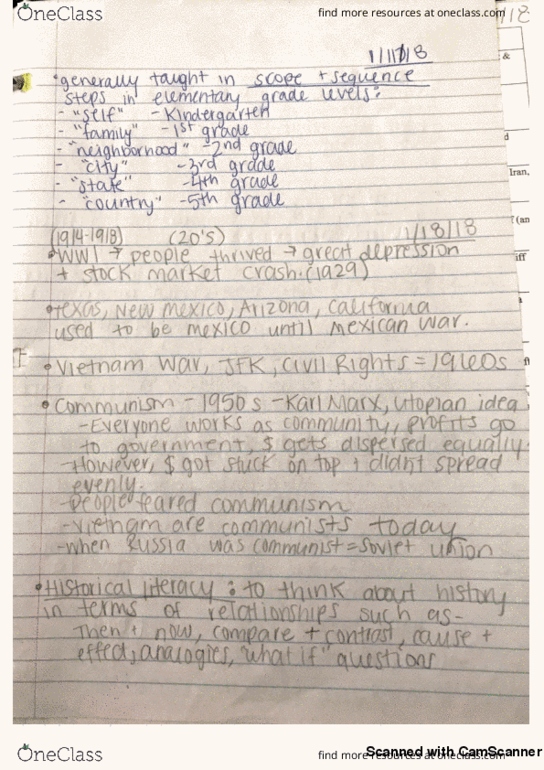 OneClass
find more resources at oneclass.com
1/18
1/17/18
&
•generally taught in scope + sequence
steps in elementary grade levels:
- "self" - Kindergarten
- "family" -1st grade
d
- "neighborhood" -2nd grade
- "city" -3rd grade
Iran,
- "state" -4th grade
- "country" -5th grade
(1914-1918) (20's) 1/18/18
•WWI → people thrived → great depression
+ stock market crash.(1929)
•texas, New mexico, Arizona, california
used to be mexico until mexican war.
•Vietnam War, JFK, Civil Rights = 1960s
•Communism - 1950s -Karl Marx, utopian idea
-Everyone works as community, profits go
to government, $ gets dispersed equally.
-However, $ got stuck on top + didnt spread
evenly.
-people feared communism
-Vietnam are communists today
-when Russia was communist = Soviet union
•Historical literacy: to think about history
in terms of relationships such as-
Then + now, compare + contrast, cause +
effect, analogies, "what if" questions
OneClass
find more resources at oneclass.com
Scanned with CamScanner